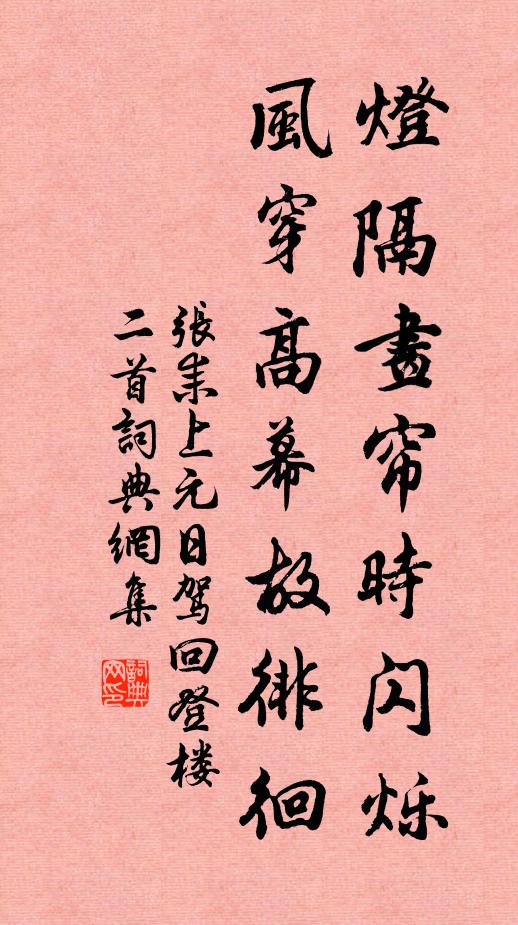 燈隔畫帘時閃烁
風穿高幕故徘徊
張耒上元日驾回登楼
二首詞典網集
詞典
网印